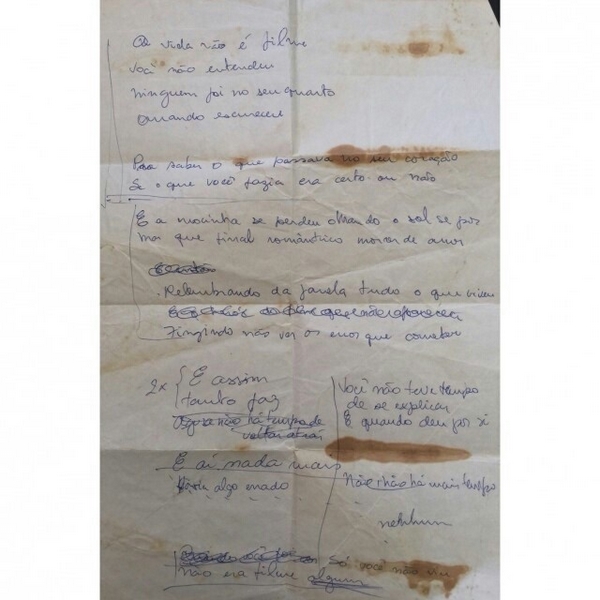 A vida não é filme
você não entendeu
ninguém foi no seu quarto
quando escurecer
Para saber o que passava no seu coração
Se o que você fazia era certo ou não
E a mocinha se perdeu olhando o sol se por
ma que final romântico morrer de amor
Relembrando da janela tudo o que viveu
Fingindo não ver os erros que cometeu
2x { E assim
tanto faz
Agora não há tempo de
voltar atrás
E aí nada mais
algo errado
Você não teve tempo
de se explicar
E quando deu por si
Não não há mais tempo
nenhum
Só você não viu
não era filme algum